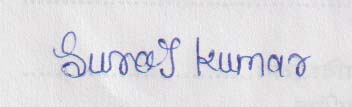 Suraj kumar